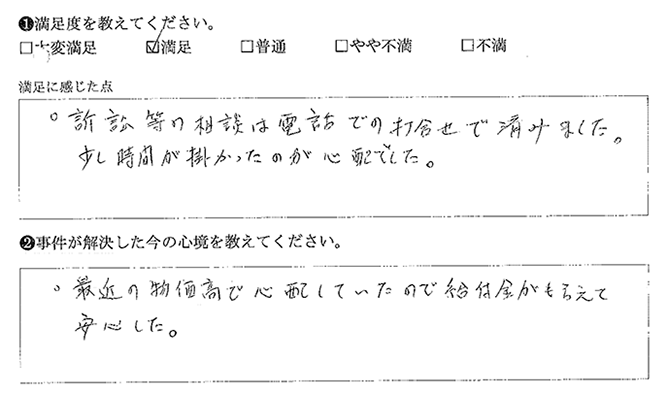 ❶満足度を教えてください。
□大変満足 ☑満足 □普通 □やや不満 □不満
満足に感じた点
○訴訟等の相談は電話での打合せで済みました。
少し時間が掛かったのが心配でした。
❷事件が解決した今の心境を教えてください。
○最近の物価高で心配していたので給付金がもらえて
安心した。